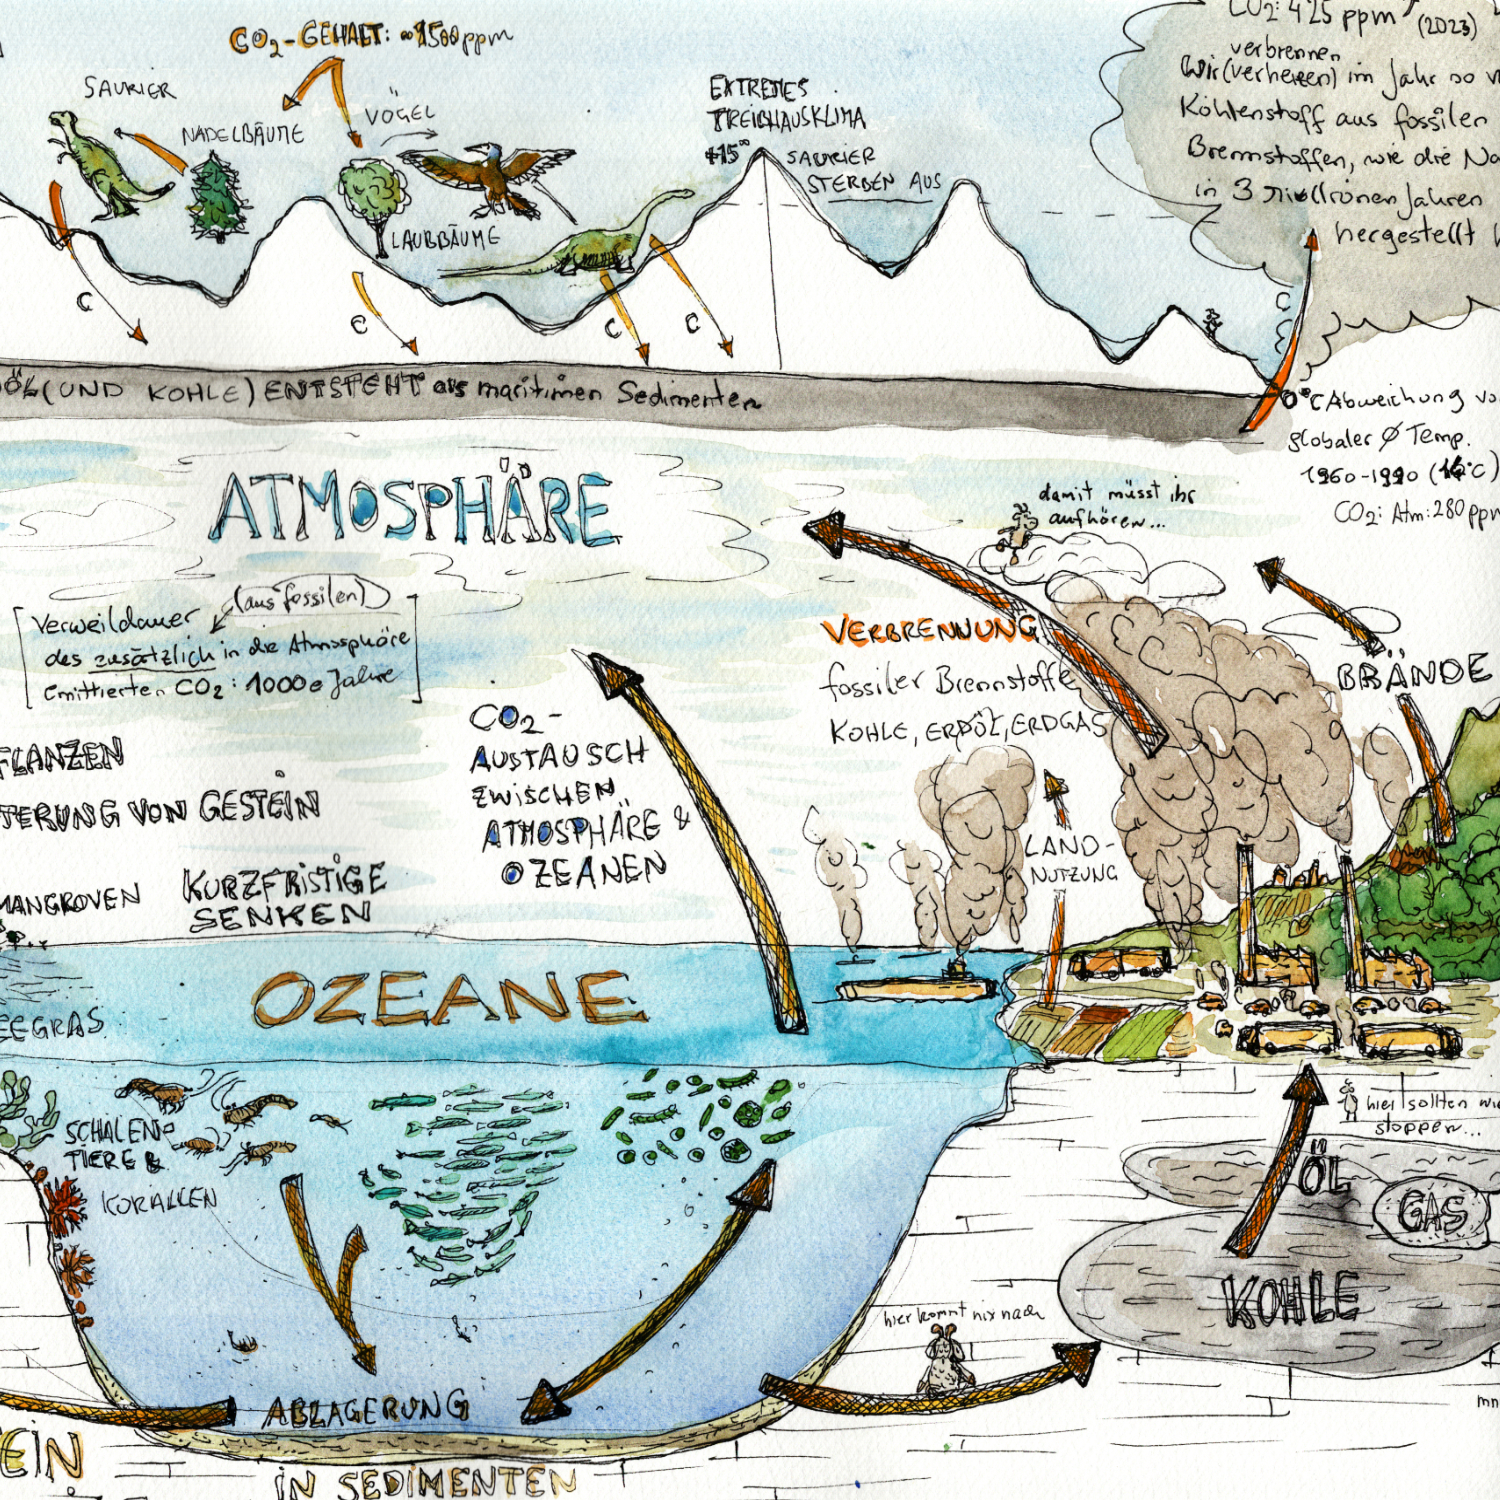 CO₂-GEHALT: ∞1500ppm
SAURIER
NADELBÄUME
VÖGEL
LAUBBÄUME
EXTREMES
TREIBHAUSKLIMA
+15°
SAURIER
STERBEN AUS
CO₂: 425 ppm (2023)
verbrennen
Wir (verheizen) im Jahr so
Kohlenstoff aus fossilen
Brennstoffen, wie die Na
in 3 Millionen Jahren
hergestellt
C
C
C
C
C
ÖL (UND KOHLE) ENTSTEHT aus maritimen Sedimenten
0°C Abweichung vo
globaler Ø Temp.
1960-1990 (14°C)
CO₂: Atm: 280 ppm
ATMOSPHÄRE
damit müsst ihr
aufhören...
(aus fossilen)
Verweildauer
des zusätzlich in die Atmosphäre
emittierten CO₂: 1000e Jahre
VERBRENNUNG
fossiler Brennstoffe
KOHLE, ERDÖL, ERDGAS
BRÄNDE
FLANZEN
TERUNG VON GESTEIN
MANGROVEN
KURZFRISTIGE
SENKEN
CO₂-
AUSTAUSCH
ZWISCHEN
ATMOSPHÄRE &
OZEANEN
LAND-
NUTZUNG
OZEANE
EEGRAS
SCHALEN-
TIERE &
KORALLEN
hier sollten wir
stoppen...
ÖL
GAS
KOHLE
hier kommt nix nach
ABLAGERUNG
IN SEDIMENTEN
EIN